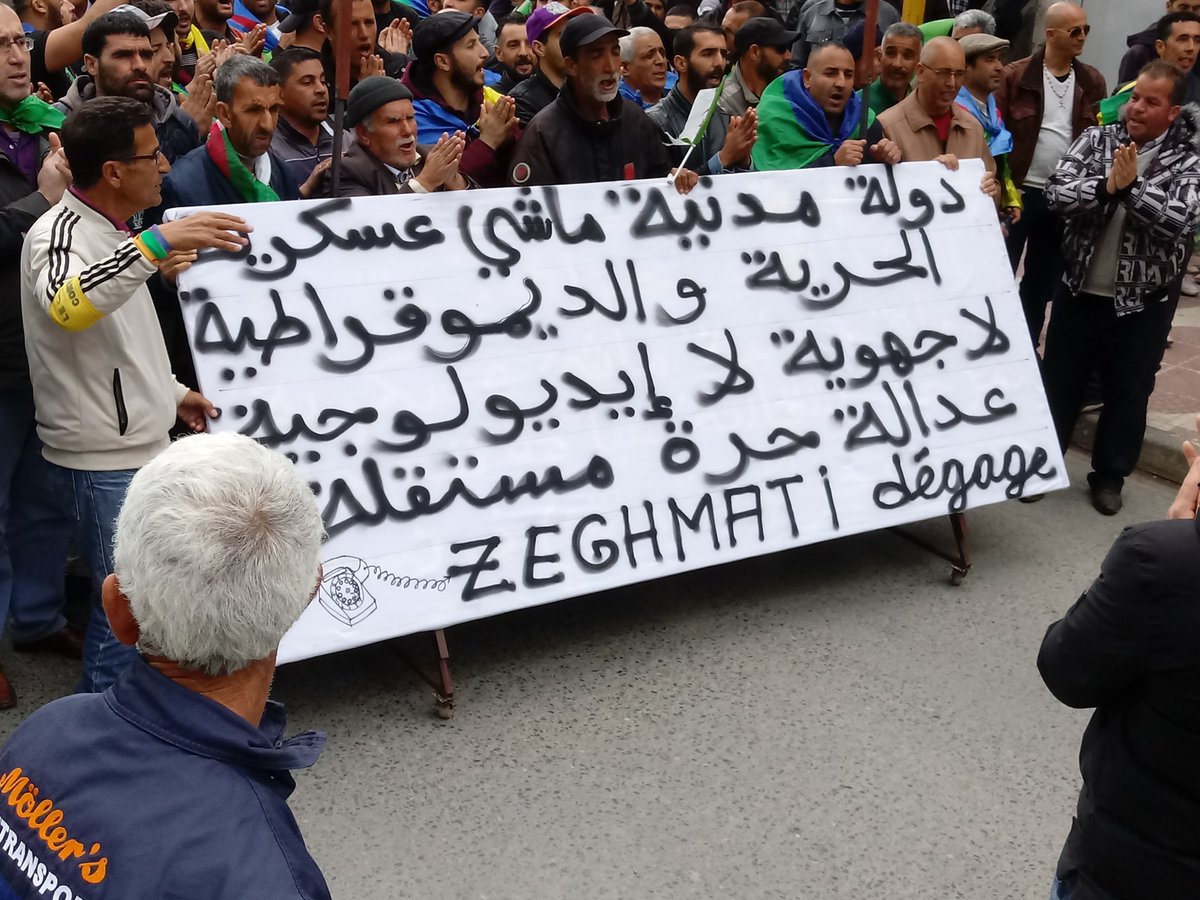 دولة مدنية ماشي عسكرية
الحرية والديموقراطية
لا جهوية لا إيديولوجية
عدالة حرة مستقلة
ZEGHMATI dégage
Möller's